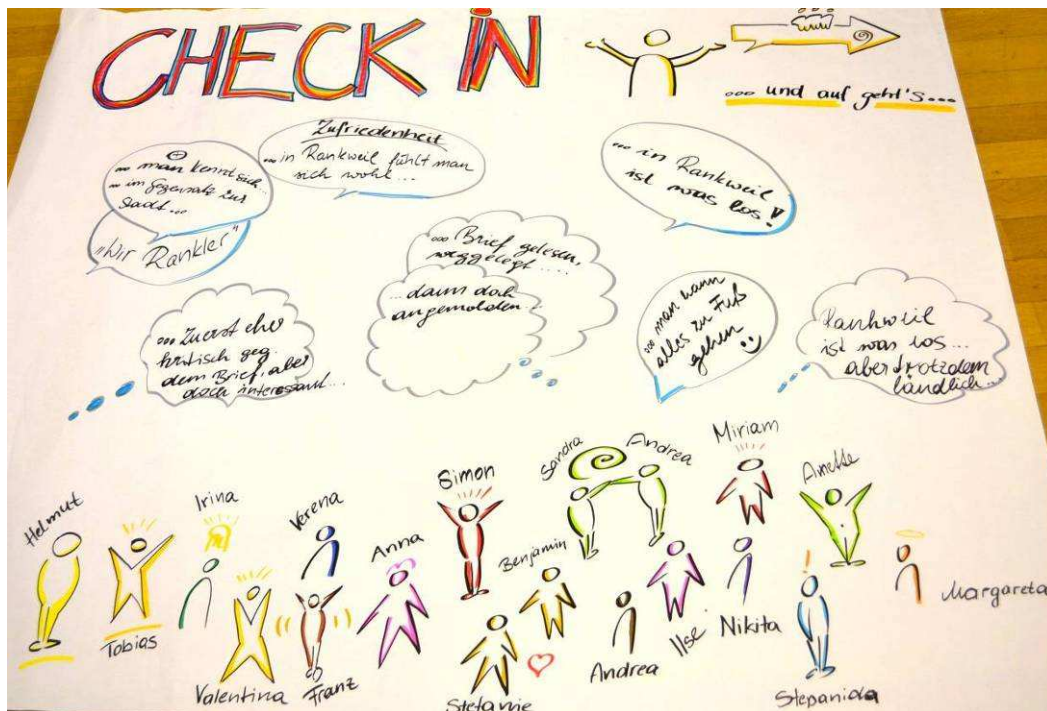 CHECK IN
... und auf geht's...
... man kennt sich...
... im Gegensatz zur
Stadt...
"Wir Rankler"
Zufriedenheit
... in Rankweil fühlt man
sich wohl...
... in Rankweil
ist was los!
... Brief gelesen,
weggelegt....
...dann doch
angemolden...
... Zuerst eher
kritisch geg.
dem Brief, aber
doch interessant...
... man kann
alles zu Fuß
gehen
Rankweil
ist was los...
aber trotzdem
ländlich...
Helmut
Tobias
Irina
Valentina
Verena
Franz
Anna
Simon
Stefanie
Benjamin
Sandra
Andrea
Andrea
Ilse
Miriam
Nikita
Anette
Stepanida
Margareta